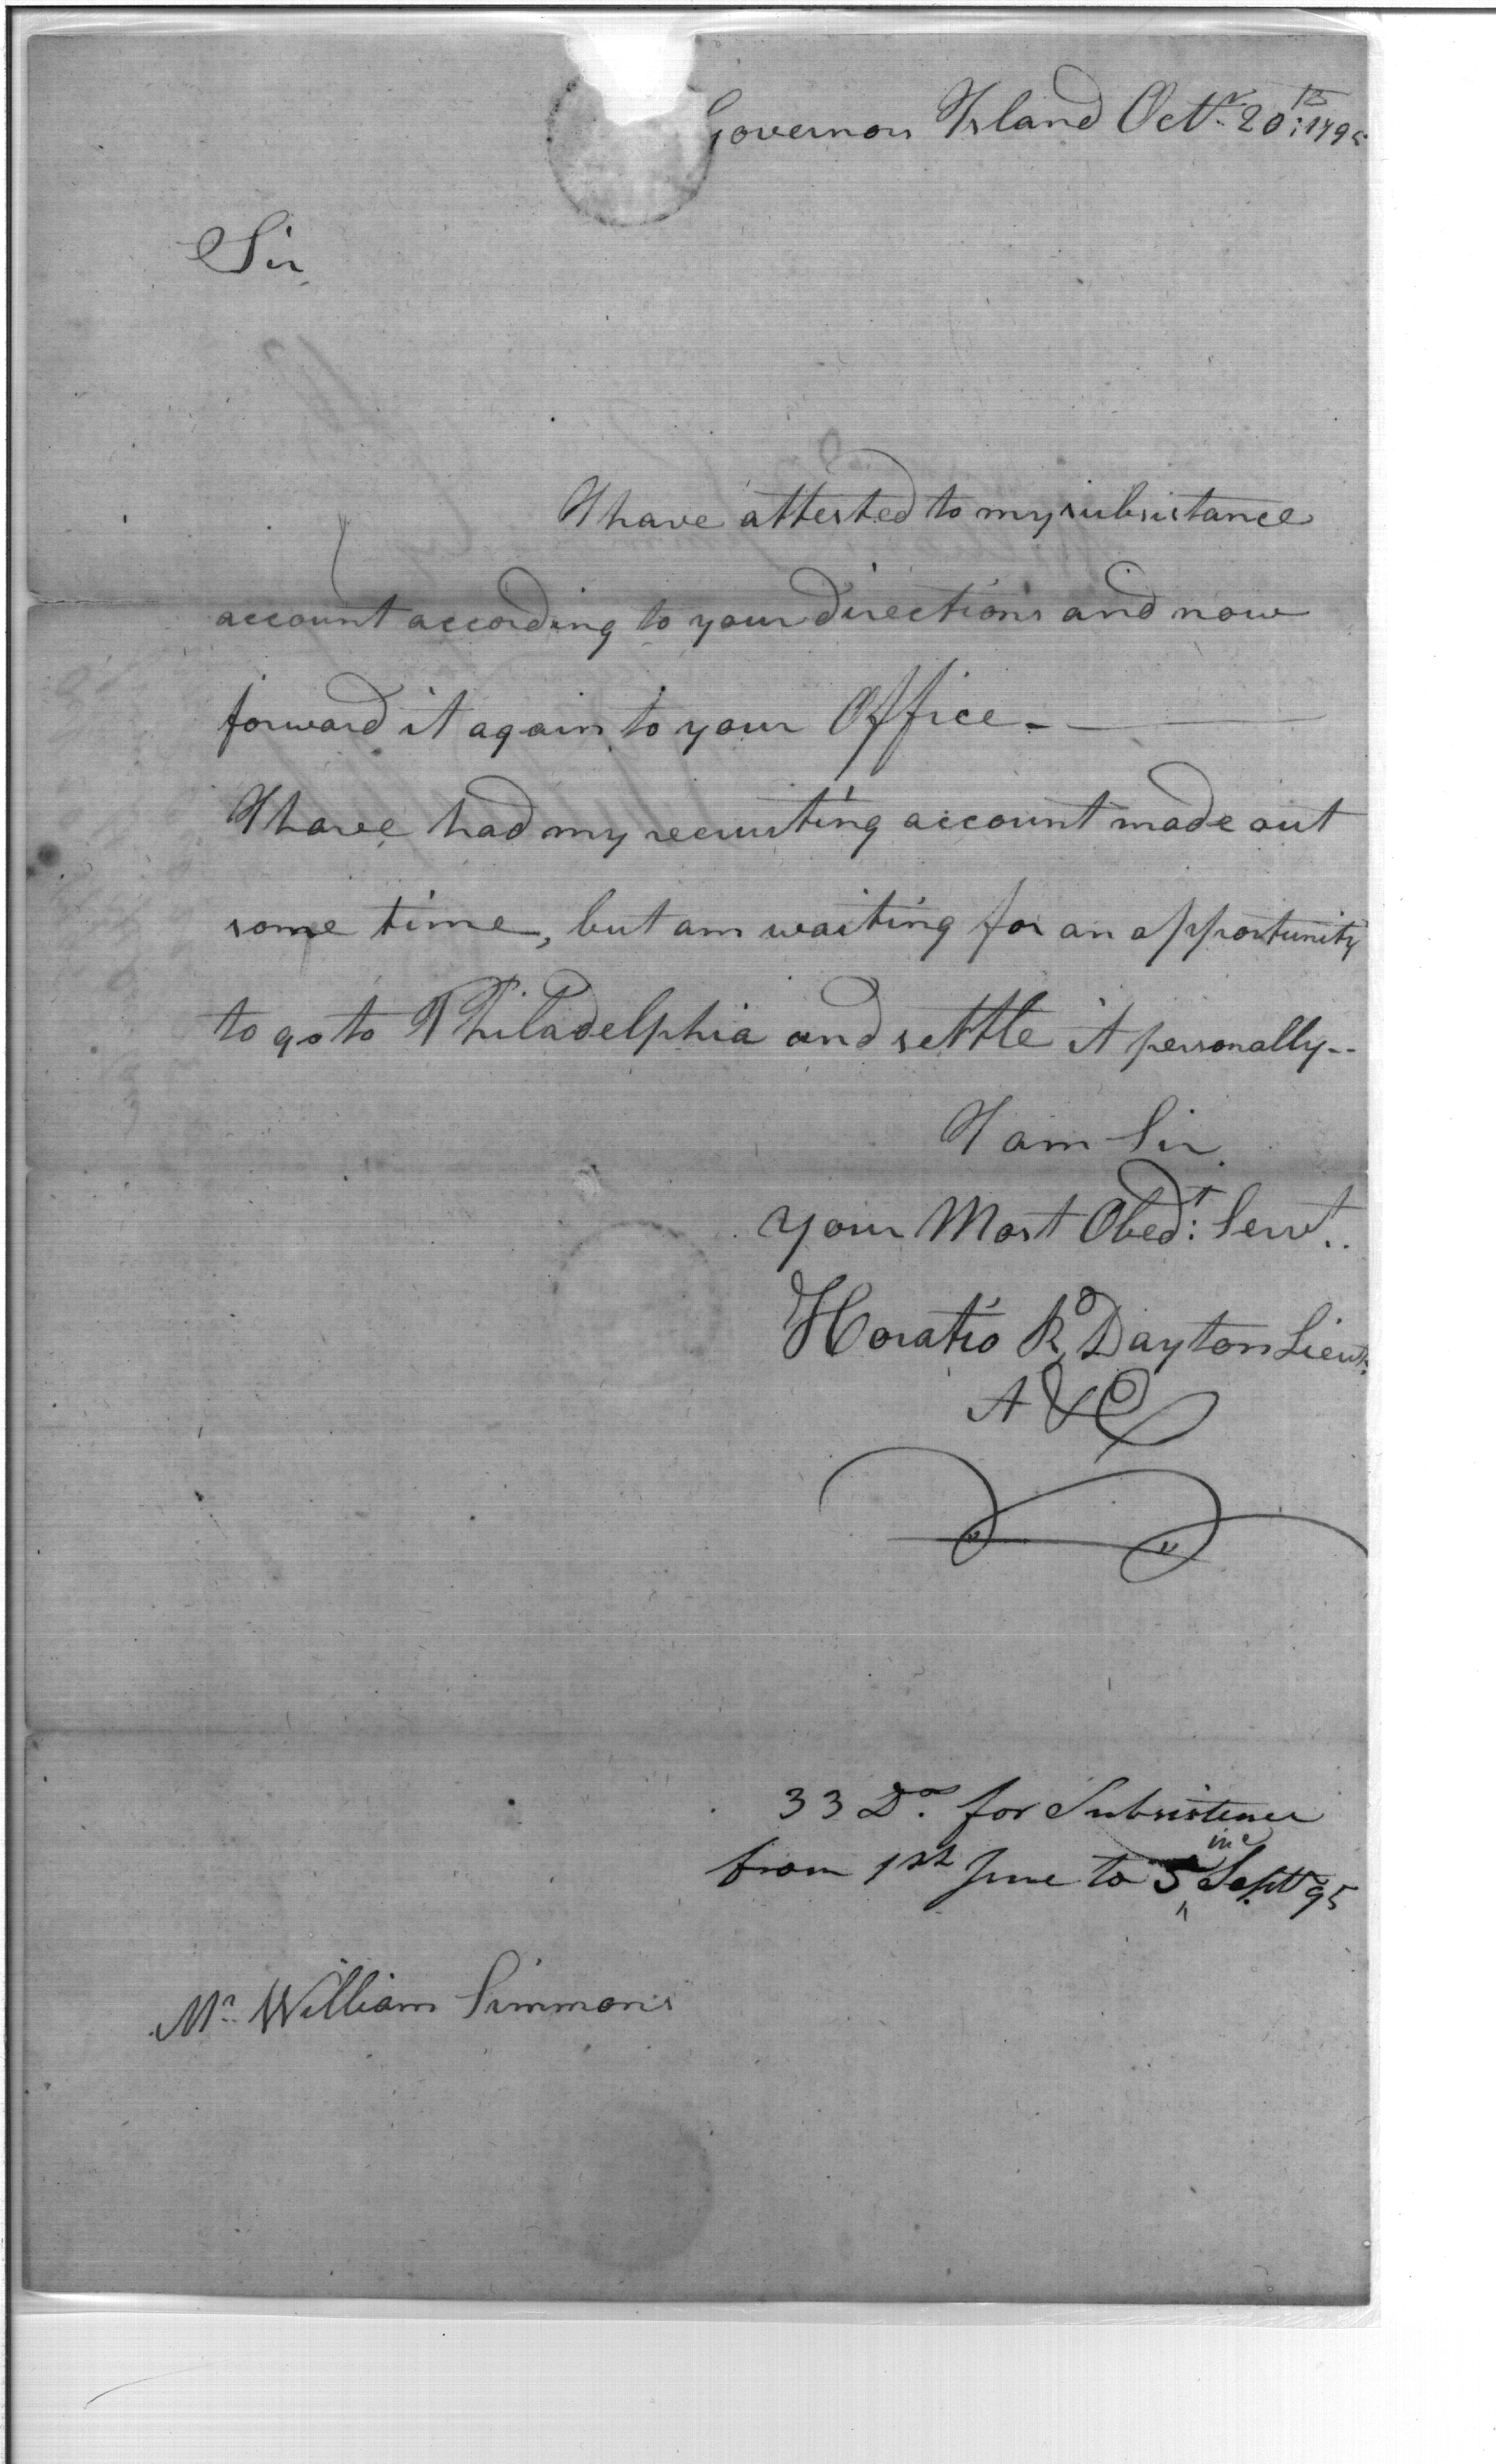 Governors Island Octr. 20th: 1795
Sir
I have attested to my subsistance
account according to your directions and now
forward it again to your Office -
I have had my recruiting account made out
some time, but am waiting for an opportunity
to go to Philadelphia and settle it personally --
I am Sir
your Most Obedt: Servt..
Horatio R Dayton Lieut.
A & E
33 Ds. for Subsistence
from 1st June to 5 ince Septr 95
Mr. William Simmons